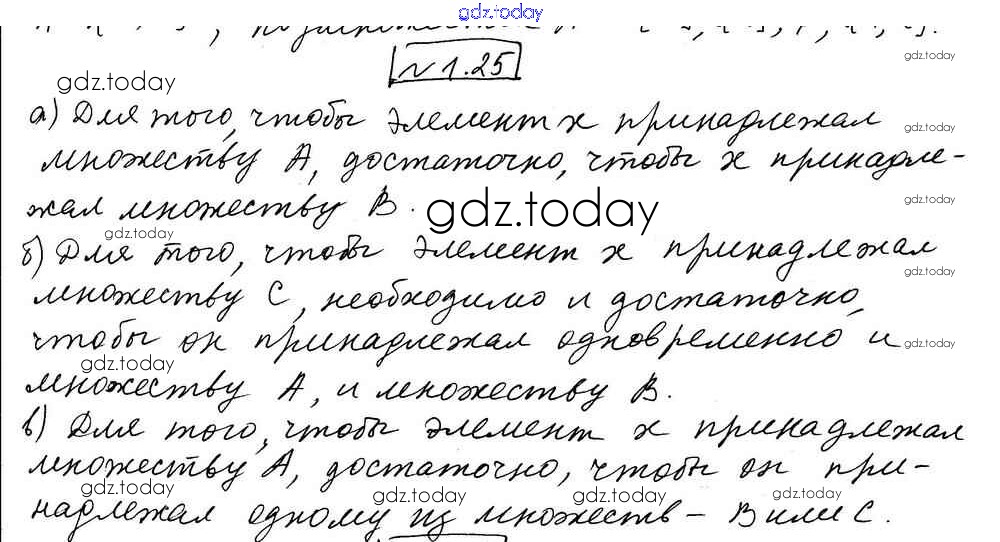 gdz.today
№ 1.25
gdz.today
а) Для того, чтобы элемент x принадлежал
gdz.today
множеству A, достаточно, чтобы x принадле-
gdz.today
жал множеству B.
gdz.today
gdz.today
gdz.today
б) Для того, чтобы элемент x принадлежал
gdz.today
множеству C, необходимо и достаточно,
чтобы он принадлежал одновременно и
gdz.today
gdz.today
множеству A, и множеству B.
в) Для того, чтобы элемент x принадлежал
множеству A, достаточно, чтобы он при-
gdz.today
gdz.today
gdz.today
gdz.today
надлежал одному из множеств – B или C.